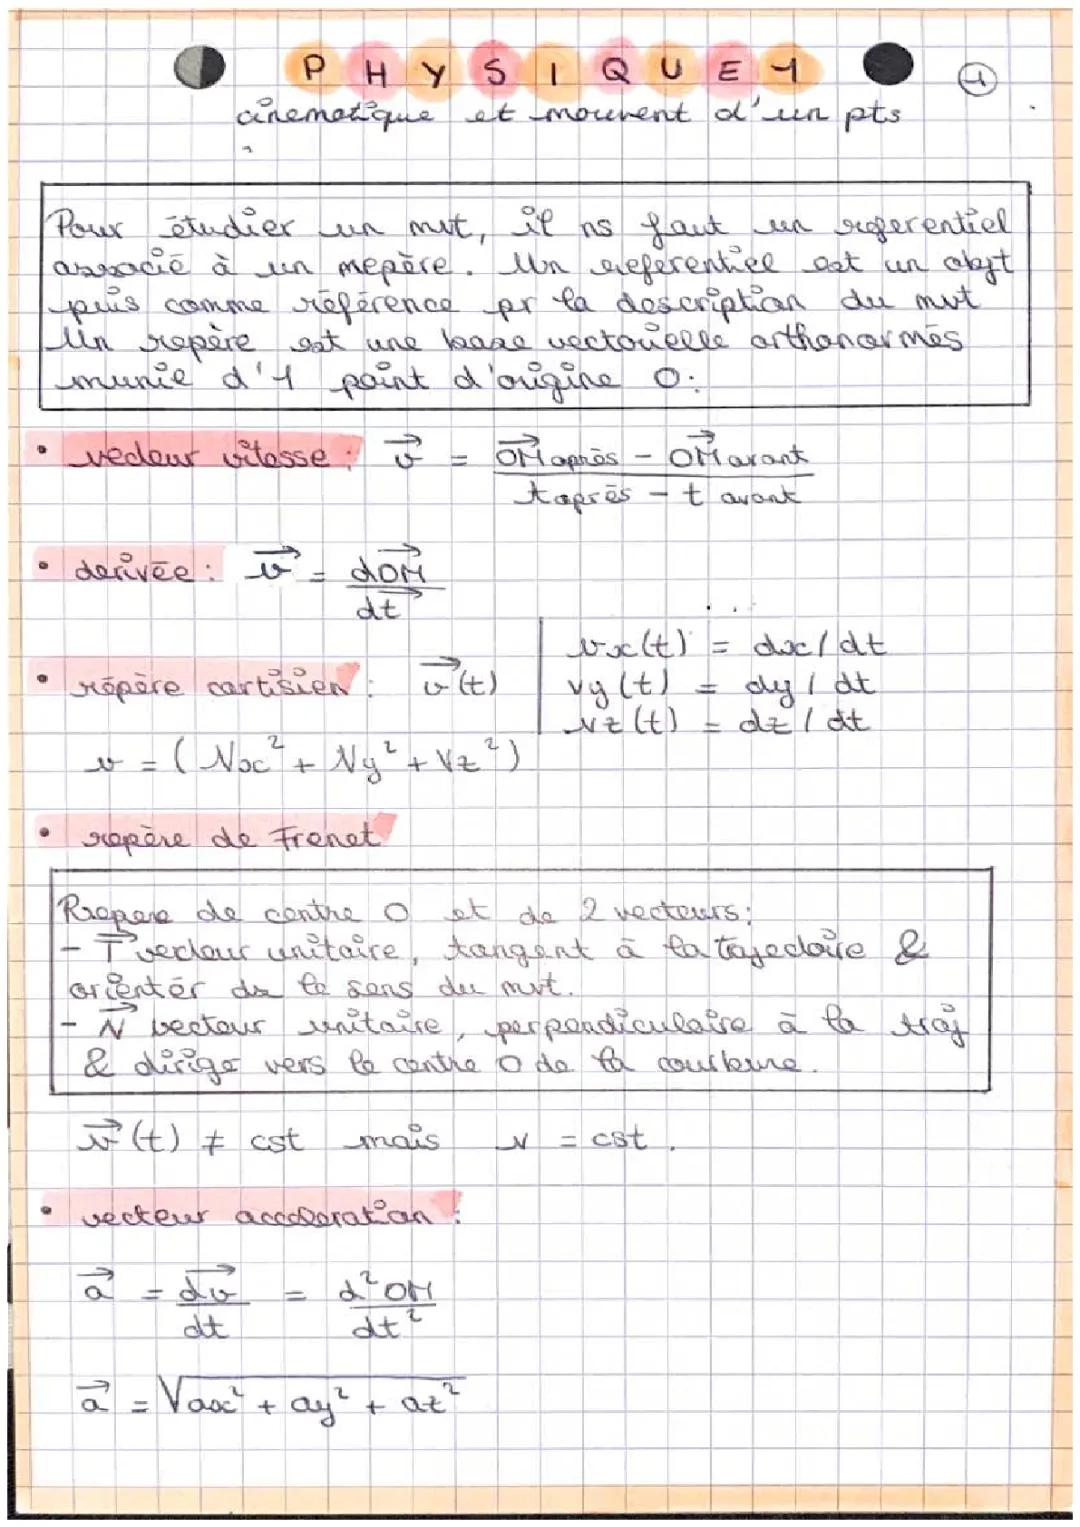 PHYSIQUE 1
1
cinematique et mouvent d'un pts
Pour étudier un mvt, il ns faut un referentiel
associé à un repère. Un referentiel est un objt
puis comme référence pr la description du mvt
Un repère est une base vectorielle orthonormés
munie d'1 point d'origine O.
• vecteur vitesse : v⃗ = (OM⃗ après - OM⃗ avant) / (t après - t avant)
• derivée : v⃗ = dOM⃗ / dt
• répère cartisien : v⃗(t) | vx(t) = dx/dt
vy(t) = dy/dt
vz(t) = dz/dt
v = (Vx² + Vy² + Vz²)
• repère de Frenet
Repere de centre O et de 2 vecteurs:
- T⃗ vecteur unitaire, tangent à la tajectoire &
orienter ds le sens du mvt.
- N⃗ vecteur unitaire, perpendiculaire à la traj
& dirige vers le centre O de la courbure.
v⃗(t) ≠ cst mais v = cst.
• vecteur acceleration :
a⃗ = dv⃗/dt = d²OM/dt²
a⃗ = √ax² + ay² + az²